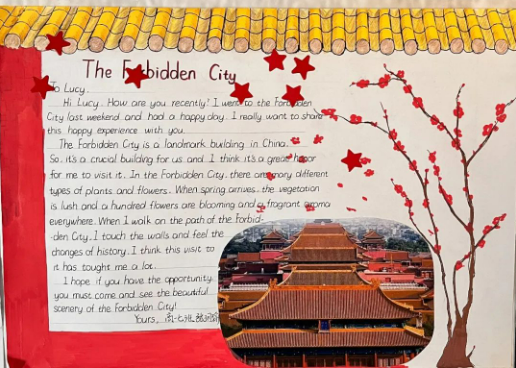 The Forbidden City
To Lucy.
Hi Lucy. How are you recently? I went to the Forbidden
City last weekend and had a happy day. I really want to share
this happy experience with you.
The Forbidden City is a landmark building in China.
So, it's a crucial building for us and I think it's a great honor
for me to visit it. In the Forbidden City, there are many different
types of plants and flowers. When spring arrives, the vegetation
is lush and a hundred flowers are blooming and a fragrant aroma
everywhere. When I walk on the path of the Forbid-
-den City. I touch the walls and feel the
changes of history. I think this visit to
it has tought me a lot.
I hope if you have the opportunity
you must come and see the beautiful
scenery of the Forbidden City!
Yours,